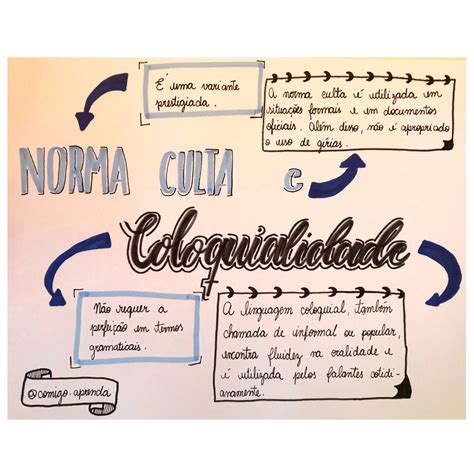 É uma variante
prestigiada.
A norma culta é utilizada em
situações formais e em documentos
oficiais. Além disso, não é apropriado
o uso de gírias.
NORMA CULTA e
Coloquialidade
Não requer a
perfeição em termos
gramaticais.
A linguagem coloquial, também
chamada de informal ou popular,
encontra fluidez na oralidade e
é utilizada pelos falantes cotidi-
anamente.
@comigo.aprenda